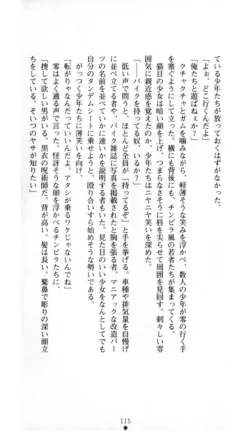 ている少年たちが放っておくはずがなかった。
「よお、どこ行くんだよ」
「俺たちと遊ばねぇか？」
クチャクチャとガムを噛みながら、軽薄そうな笑みを浮かべ、数人の少年が零の行く手
を塞ぐようにして立った。横にも背後にも、チンピラ風の若者たちが集まってくる。
猫目の少女は暗い顔を上げ、つまらなさそうに唇を尖らせて周囲を見回す。刺々しい雰
囲気に親近感を感じたのか、少年たちはニヤニヤ笑いを深めた。
「――バイクを持ってる奴、いる？」
低い声で問うと、ほとんど全員が「持ってるぞ」と手を挙げる。車種や排気量を自慢げ
に並べ立てる者や、バイク雑誌に写真を掲載されたと胸を張る者、マニアックな改造パー
ツの名前を並べていかに速いかを説明する者もいた。見目のよい少女をなんとしてでも
自分のタンデムシートに乗せようと、殴り合いすら始めそうな勢いである。
がっつく少年たちに薄笑いを向け、
「転がりゃなんだっていいんだよ。アタシが乗るワケじゃないんでね」
零はよく通る声で言った。怪訝そうな顔を浮かべるチンピラたちに、
「捜して欲しい男がいる。黒衣の呪術師だ。背が高い。髪は長い。鷲鼻で彫りの深い顔立
ちをしている。そいつのヤサが知りたい」
115